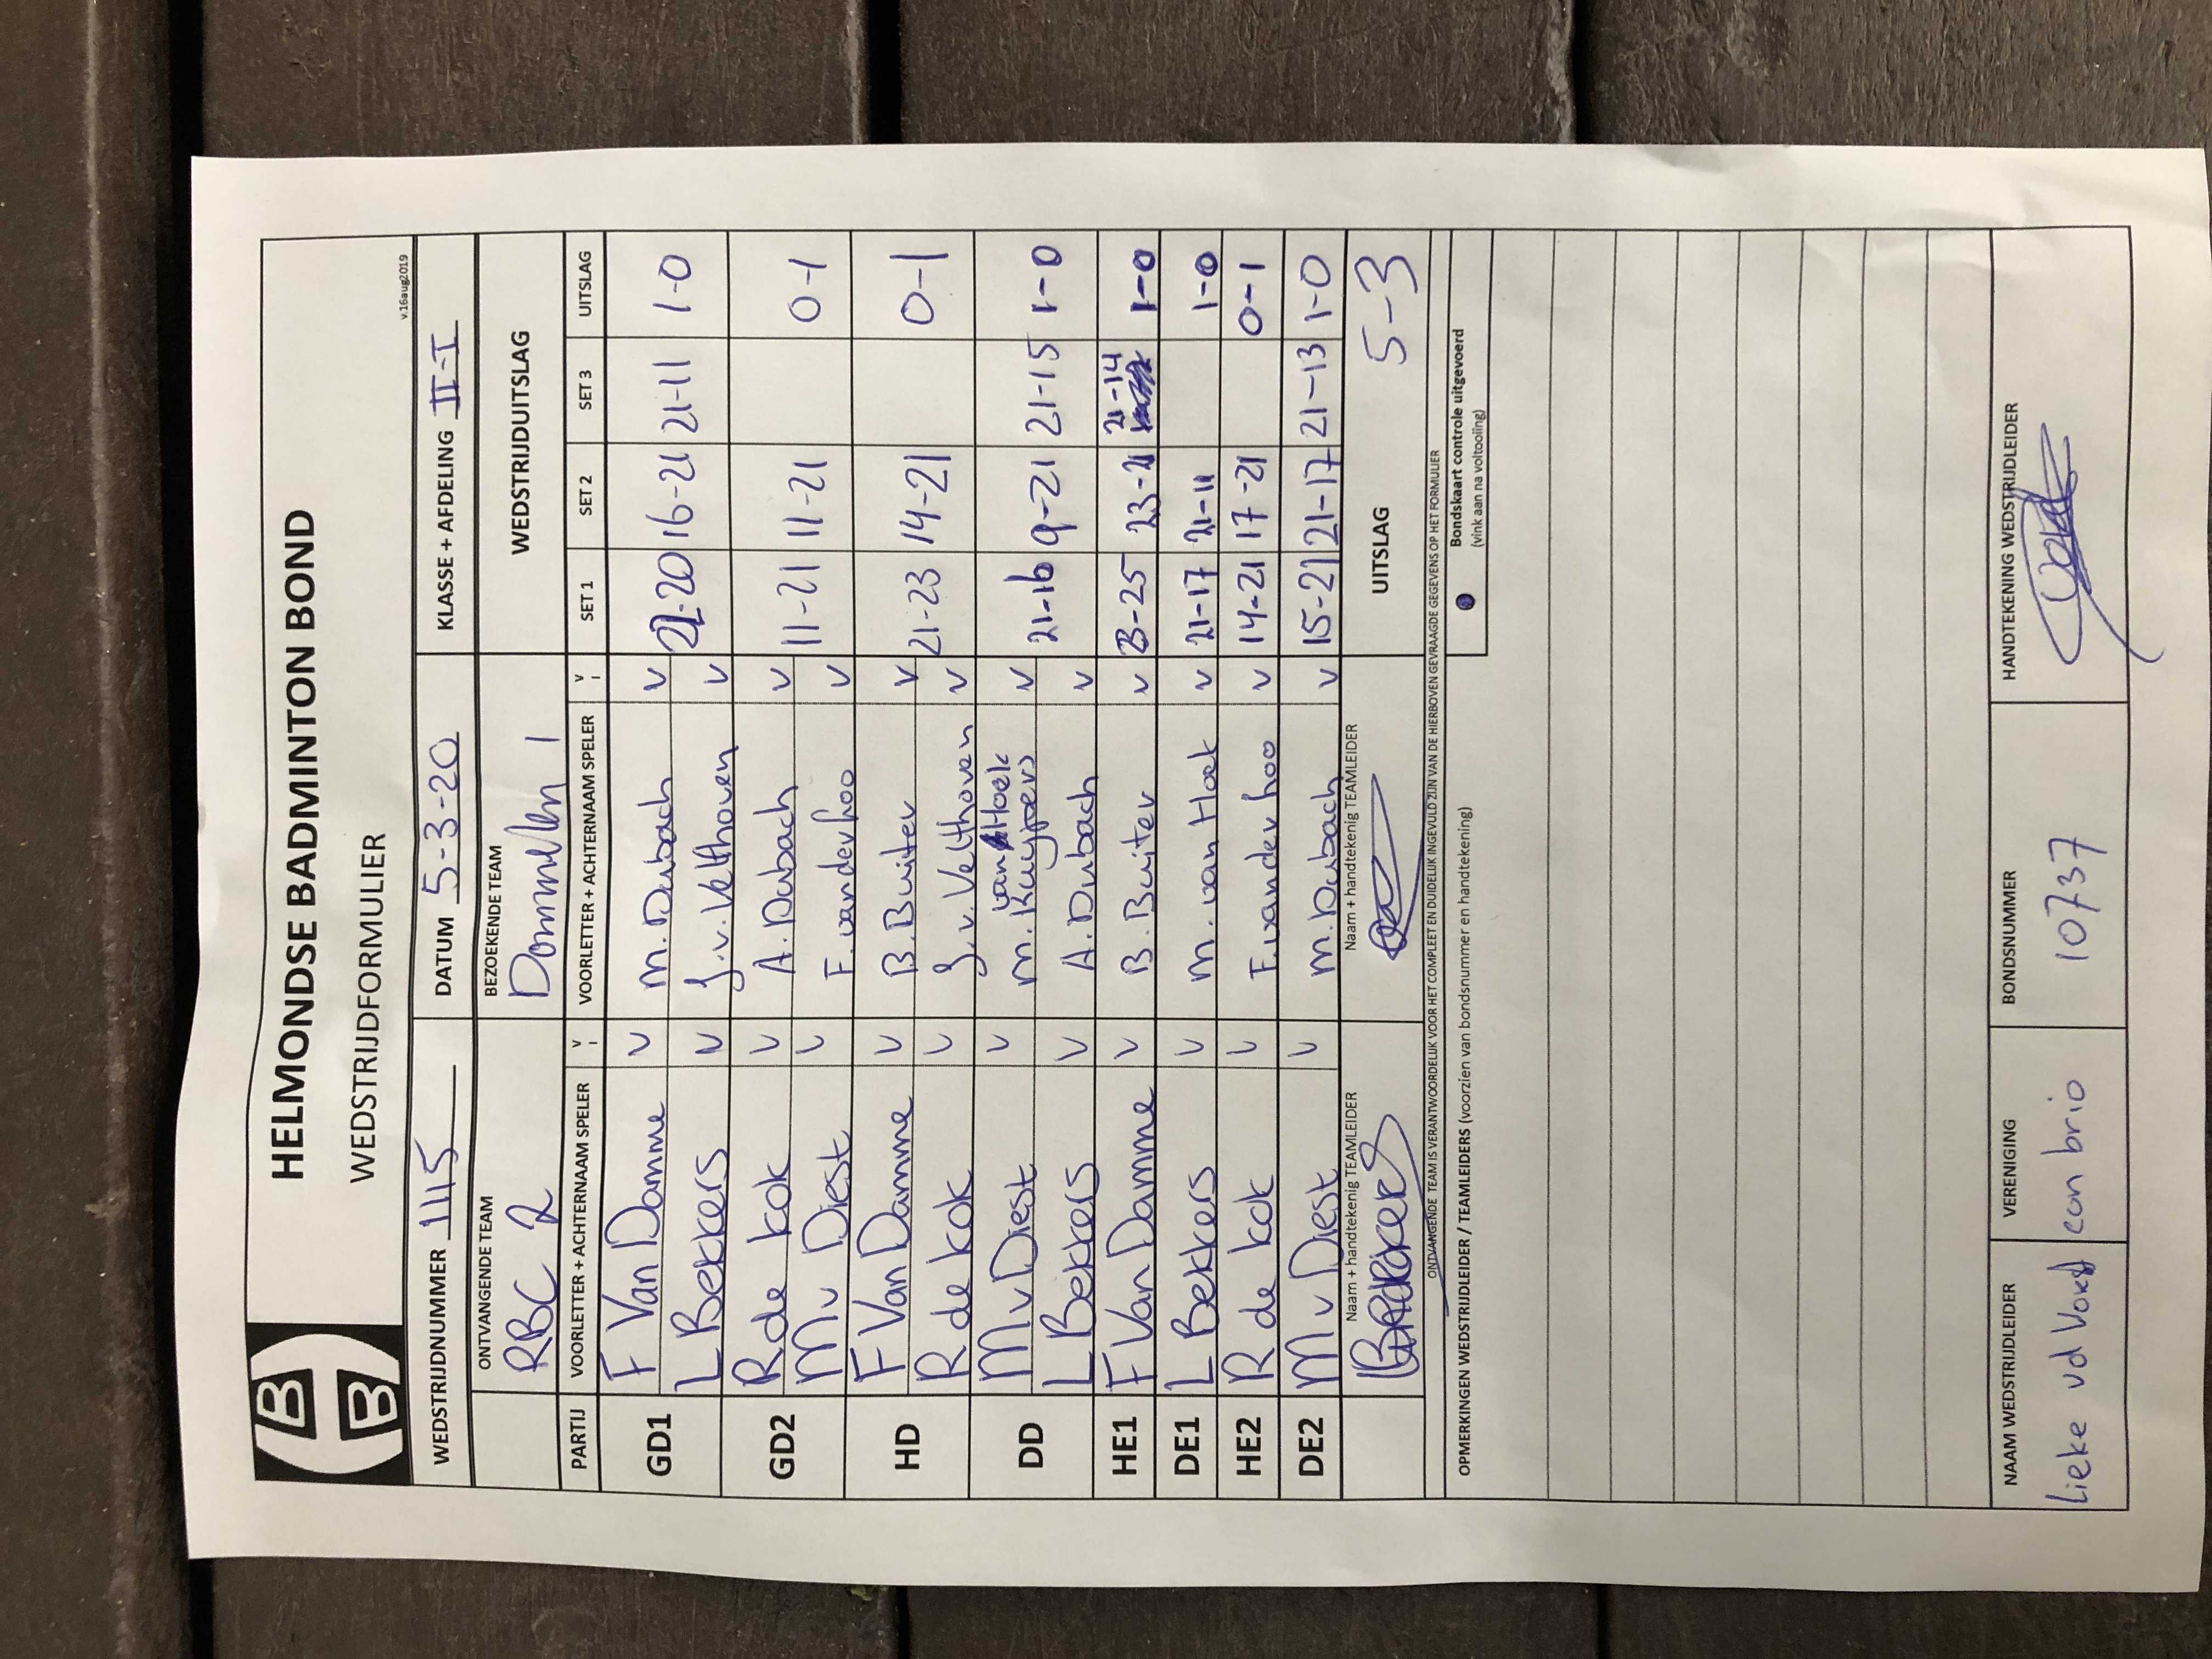 HB
B
HELMONDSE BADMINTON BOND
WEDSTRIJDFORMULIER
v.16aug2019
WEDSTRIJDNUMMER 1115 DATUM 5-3-20 KLASSE + AFDELING II-I
ONTVANGENDE TEAM BEZOEKENDE TEAM WEDSTRIJDUITSLAG
RBC 2 1
PARTIJ VOORLETTER + ACHTERNAAM SPELER V VOORLETTER + ACHTERNAAM SPELER V SET 1 SET 2 SET 3 UITSLAG
GD1 F Van Damme V M. Dubach V 22-20 16-21 21-11 1-0
L Bekkers V J.v. Velthoven V
GD2 R de kok V A. Dubach V 11-21 11-21 0-1
M v Diest V F. vanderhoo V
HD F Van Damme V B. Buiter V 21-23 14-21 0-1
R de kok V J.v. Velthoven V
DD M v Diest V M. van Hoek V 21-16 9-21 21-15 1-0
Kuypers
L Bekkers V A. Dubach V
HE1 F Van Damme V B. Buiter V 23-25 23-21 21-14 1-0
DE1 L Bekkers V M. van Hoek V 21-17 21-11 1-0
HE2 R de kok V F. vander hoo V 14-21 17-21 0-1
DE2 M v Diest V M. Dubach V 15-21 21-17 21-13 1-0
Naam + handtekenig TEAMLEIDER Naam + handtekenig TEAMLEIDER UITSLAG 5-3
ONTVANGENDE TEAM IS VERANTWOORDELIJK VOOR HET COMPLEET EN DUIDELIJK INGEVULD ZIJN VAN DE HIERBOVEN GEVRAAGDE GEGEVENS OP HET FORMULIER
OPMERKINGEN WEDSTRIJDLEIDER / TEAMLEIDERS (voorzien van bondsnummer en handtekening)
Bondskaart controle uitgevoerd
(vink aan na voltooling)
NAAM WEDSTRIJDLEIDER VERENIGING BONDSNUMMER HANDTEKENING WEDSTRIJDLEIDER
Lieke vd Vorst con brio 10737